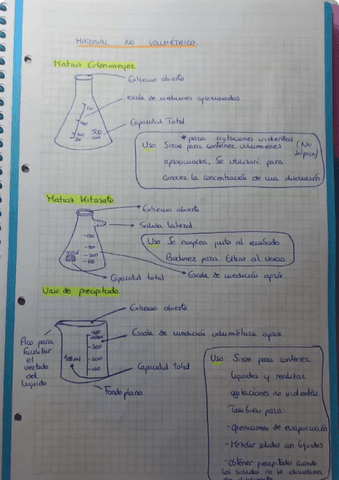 MATERIAL NO VOLUMÉTRICO.
Matraz Erlenmeyer
Extremo abierto
Escala de mediciones aproximadas
Capacidad Total
*para agitaciones violentas
(No salpica)
Uso Sirve para contener volumenes
aproximados. Se utilizará para
conocer la concentración de una disolución
Matraz Kitasato
Extremo abierto
Salida lateral
Uso Se emplea junto al embudo
Buchner para filtrar al vacio
Capacidad total
Escala de medición aprox.
Vaso de precipitado.
Extremo abierto
Escala de medición volumétrica aprox.
Pico para
facilitar
el
vertido
del
líquido
Capacidad Total
Fondo plano
Uso Sirve para contener
liquidos y realizar
agitaciones no violentas
También para:
-Operaciones de evaporación
-Mezclar solidos con liquidos
-Obtener precipitados cuando
los solidos no se disuelven